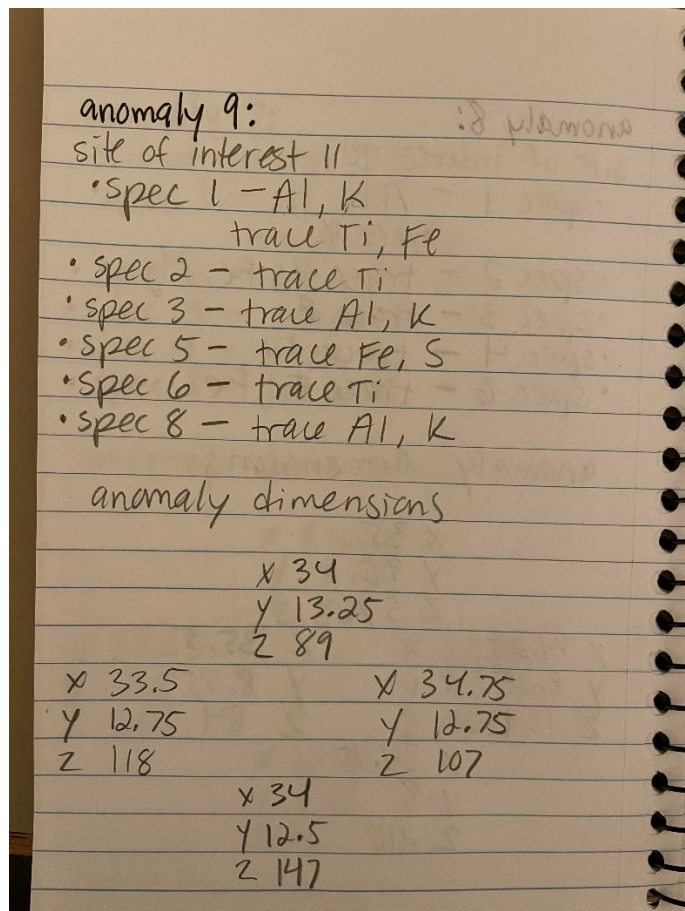 anomaly 9:
site of interest 11
• spec 1 – Al, K
trace Ti, Fe
• spec 2 – trace Ti
• spec 3 – trace Al, K
• spec 5 – trace Fe, S
• spec 6 – trace Ti
• spec 8 – trace Al, K
anomaly dimensions
x 34
y 13.25
z 89
x 33.5 x 34.75
y 12.75 y 12.75
z 118 z 107
x 34
y 12.5
z 147